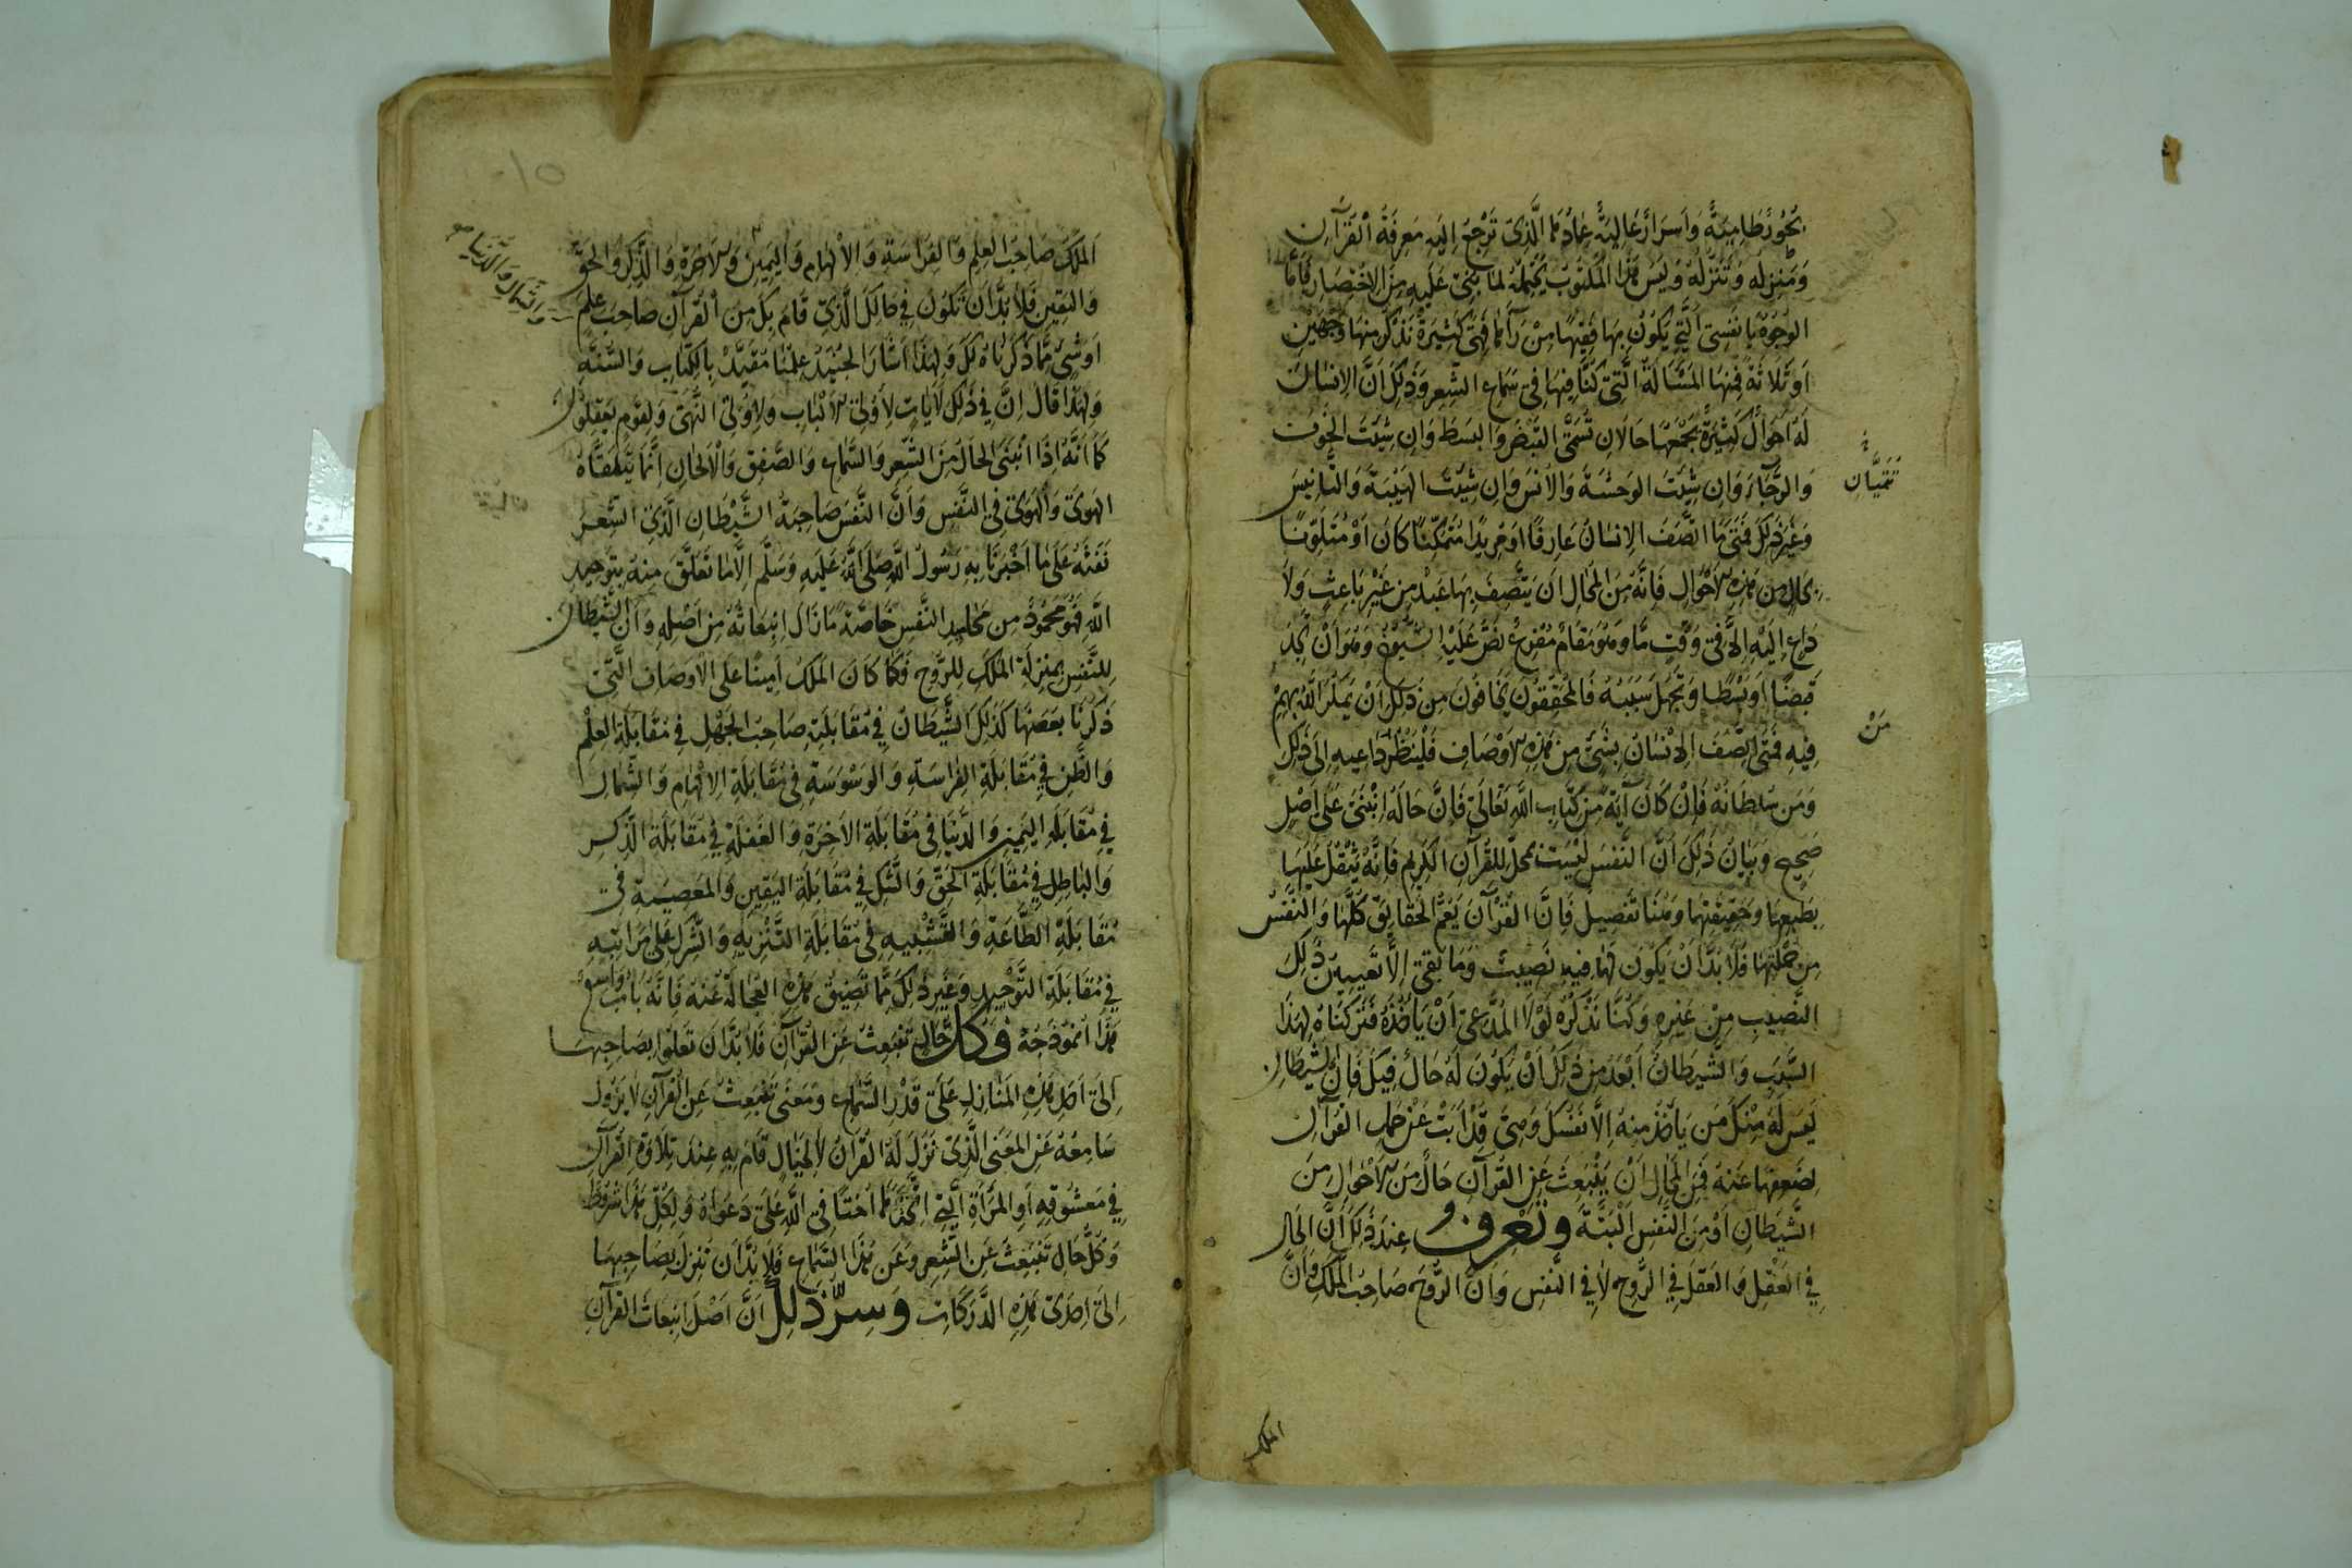 بُحُورٌ طَامِيَةٌ وَاَسْرَارٌ عَالِيَةٌ عِمَادُهَا الَّذِي تَرْجِعُ اِلَيْهِ مَعْرِفَةُ الْقُرْآنِ
وَمَنْزِلِهِ وَتَنَزُّلِهِ وَلَيْسَ هٰذَا الْمَكْتُوبُ يَحْمِلُهُ لِمَا بُنِيَ عَلَيْهِ مِنَ الِاخْتِصَارِ فَاَمَّا
الوُجُوهُ يَا نَفْسِي الَّتِي يَكُونُ بِهَا فَهِيَ كَثِيرَةٌ نَذْكُرُ مِنْهَا وَجْهَيْنِ
اَوْ ثَلَاثَةً فَمِنْهَا المَسْئَالَةُ الَّتِي كُنَّا فِيهَا فِي سَمَاعِ الشِّعْرِ وَذٰلِكَ اَنَّ الاِنْسَانَ
لَهُ اَحْوَالٌ كَثِيرَةٌ يَجْمَعُهَا حَالَانِ تُسَمَّى القَبْضَ وَالبَسْطَ وَاِنْ شِئْتَ الخَوْفَ
وَالرَّجَآءَ وَاِنْ شِئْتَ الوَحْشَةَ وَالأُنْسَ وَاِنْ شِئْتَ الهَيْبَةَ وَالتَّانِيسَ
وَغَيْرَ ذٰلِكَ فَمَتَى مَا اتَّصَفَ الاِنْسَانُ عَارِفًا اَوْ مُرِيدًا مُتَمَكِّنًا كَانَ اَوْ مُتَلَوِّنًا
بِحَالٍ مِنْ هٰذِهِ الاَحْوَالِ فَاِنَّهُ مِنَ المُحَالِ اَنْ يَتَّصِفَ بِهَا عَبْدٌ مِنْ غَيْرِ بَاعِثٍ وَلَا
دَاعٍ اِلَيْهِ اِلَّا فِي وَقْتٍ مَّا وَهُوَ مَقَامٌ نَصَّ عَلَيْهِ الشُّيُوخُ وَهُوَ اَنْ يَجِدَ
قَبْضًا اَوْ بَسْطًا وَيَجْهَلَ سَبَبَهُ فَالمُحَقِّقُونَ يَخَافُونَ مِنْ ذٰلِكَ اَنْ يَمْكُرَ اللّٰهُ بِهِمْ
فِيهِ فَمَتَى اتَّصَفَ الاِنْسَانُ بِشَيْءٍ مِنْ هٰذِهِ الاَوْصَافِ فَلْيَنْظُرْ دَاعِيهِ اِلَى ذٰلِكَ
وَمَنْ سُلْطَانُهُ فَاِنْ كَانَ آيَةً مِنْ كِتَابِ اللّٰهِ تَعَالَى فَاِنَّ حَالَهُ انْبَنَى عَلَى اَصْلٍ
صَحِيحٍ وَبَيَانُ ذٰلِكَ اَنَّ النَّفْسَ لَيْسَتْ بِمَحَلٍّ لِلْقُرْآنِ الكَرِيمِ فَاِنَّهُ يَثْقُلُ عَلَيْهَا
بِطَبْعِهَا وَحَقِيقَتِهَا وَهُنَا تَفْصِيلٌ فَاِنَّ القُرْآنَ يَعُمُّ الحَقَايِقَ كُلَّهَا وَالنَّفْسُ
مِنْ جُمْلَتِهَا فَلَا بُدَّ اَنْ يَكُونَ لَهَا فِيهِ نَصِيبٌ وَمَا بَقِيَ اِلَّا تَعْيِينُ ذٰلِكَ
النَّصِيبِ مِنْ غَيْرِهِ وَكُنَّا نَذْكُرُهُ لَوْلَا المُدَّعِي اَنْ يَاْخُذَهُ فَتَرَكْنَاهُ لِهٰذَا
السَّبَبِ وَالشَّيْطَانُ اَبْعَدُ مِنْ ذٰلِكَ اَنْ يَكُونَ لَهُ حَالٌ فِيكَ فَاِنَّ الشَّيْطَانَ
لَيْسَ لَهُ مِنْكَ مَنْ يَاْخُذُ مِنْهُ اِلَّا نَفْسُكَ وَهِيَ قَدْ اَبَتْ عَنْ حَمْلِ القُرْآنِ
لِضَعْفِهَا عَنْهُ فَمِنَ المُحَالِ اَنْ يَنْبَعِثَ عَنِ القُرْآنِ حَالٌ مِنَ الاَحْوَالِ مِنَ
الشَّيْطَانِ اَوْ مِنَ النَّفْسِ الْبَتَّةَ وَتَعْرِفُ عِنْدَ ذٰلِكَ اَنَّ الحَالَ
فِي العَقْلِ وَالعَقْلَ فِي الرُّوحِ لَا فِي النَّفْسِ وَاَنَّ الرُّوحَ صَاحِبُ المَلَكِ وَاَنَّ
مَنْ
الملك
١٥
اَلمَلَكَ صَاحِبُ العِلْمِ وَالفِرَاسَةِ وَالاِلْهَامِ وَاليَمِينِ وَالاٰخِرَةِ وَالذِّكْرِ وَالحَقِّ
وَاليَقِينِ فَلَا بُدَّ اَنْ تَكُونَ فِي حَالِكَ الَّذِي قَامَ بِكَ مِنَ القُرْآنِ صَاحِبَ عِلْمٍ
اَوْ شَيْءٍ مِمَّا ذَكَرْنَاهُ لَكَ وَلِهٰذَا اَشَارَ الجُنَيْدُ عِلْمُنَا مُقَيَّدٌ بِالكِتَابِ وَالسُّنَّةِ
وَلِهٰذَا قَالَ اِنَّ فِي ذٰلِكَ لَاٰيَاتٍ لِاُولِي الاَلْبَابِ وَلِاُولِي النُّهَى وَلِقَوْمٍ يَعْقِلُونَ
كَمَا اَنَّهُ اِذَا انْبَنَى الحَالُ مِنَ الشِّعْرِ وَالسَّمَاعِ وَالصَّفْقِ وَالاَلْحَانِ اِنَّمَا يَتَلَقَّاهُ
الهَوَى وَالهَوَى فِي النَّفْسِ وَاَنَّ النَّفْسَ صَاحِبَةُ الشَّيْطَانِ الَّذِي الشِّعْرُ
نَفَثَهُ عَلَى مَا اَخْبَرَنَا بِهِ رَسُولُ اللّٰهِ صَلَّى اللّٰهُ عَلَيْهِ وَسَلَّمَ اِلَّا مَا تَعَلَّقَ مِنْهُ بِتَوْحِيدِ
اللّٰهِ فَهُوَ مَحْمُودٌ مِنْ مَحَامِدِ النَّفْسِ خَاصَّةً مَا زَالَ اِنْبِعَاثُهُ مِنْ اَصْلِهِ وَاَنَّ الشَّيْطَانَ
لِلنَّفْسِ بِمَنْزِلَةِ المَلَكِ لِلرُّوحِ فَكَمَا كَانَ المَلَكُ اَمِينًا عَلَى الاَوْصَافِ الَّتِي
ذَكَرْنَا بَعْضَهَا كَذٰلِكَ الشَّيْطَانُ فِي مُقَابَلَتِهِ صَاحِبُ الجَهْلِ فِي مُقَابَلَةِ العِلْمِ
وَالظَّنِّ فِي مُقَابَلَةِ الفِرَاسَةِ وَالوَسْوَسَةِ فِي مُقَابَلَةِ الاِلْهَامِ وَالشِّمَالِ
فِي مُقَابَلَةِ اليَمِينِ وَالدُّنْيَا فِي مُقَابَلَةِ الاٰخِرَةِ وَالغَفْلَةِ فِي مُقَابَلَةِ الذِّكْرِ
وَالبَاطِلِ فِي مُقَابَلَةِ الحَقِّ وَالشَّكِّ فِي مُقَابَلَةِ اليَقِينِ وَالمَعْصِيَةِ فِي
مُقَابَلَةِ الطَّاعَةِ وَالتَّشْبِيهِ فِي مُقَابَلَةِ التَّنْزِيهِ وَالشِّرْكِ عَلَى مَرَاتِبِهِ
فِي مُقَابَلَةِ التَّوْحِيدِ وَغَيْرِ ذٰلِكَ مِمَّا تَضِيقُ هٰذِهِ العُجَالَةُ عَنْهُ فَاِنَّهُ بَابٌ وَاسِعٌ
هٰذَا اُنْمُوذَجُهُ فَكُلُّ حَالٍ تَنْبَعِثُ عَنِ القُرْآنِ فَلَا بُدَّ اَنْ تَعْلُوَ بِصَاحِبِهَا
اِلَى اَحَدِ هٰذِهِ المَنَازِلِ عَلَى قَدْرِ السَّمَاعِ وَمَعْنَى تَنْبَعِثُ عَنِ القُرْآنِ لَا يَزُولُ
سَامِعُهُ عَنِ المَعْنَى الَّذِي نَزَلَ لَهُ القُرْآنُ لَا لِخَيَالٍ قَامَ بِهِ عِنْدَ تِلَاوَةِ القُرْآنِ
فِي مَعْشُوقِهِ اَوِ المَرْأَةِ الَّتِي اتَّخَذَهَا اُخْتًا فِي اللّٰهِ عَلَى دَعْوَاهُ وَلِكُلِّ هٰذَا شُرُوطٌ
وَكُلُّ حَالٍ تَنْبَعِثُ عَنِ الشِّعْرِ وَعَنْ هٰذَا السَّمَاعِ فَلَا بُدَّ اَنْ تَنْزِلَ بِصَاحِبِهَا
اِلَى اِحْدَى هٰذِهِ الدَّرَكَاتِ وَسِرُّ ذٰلِكَ اَنَّ اَصْلَ انْبِعَاثِ القُرْآنِ
وَالشِّمَالِ وَالدُّنْيَا